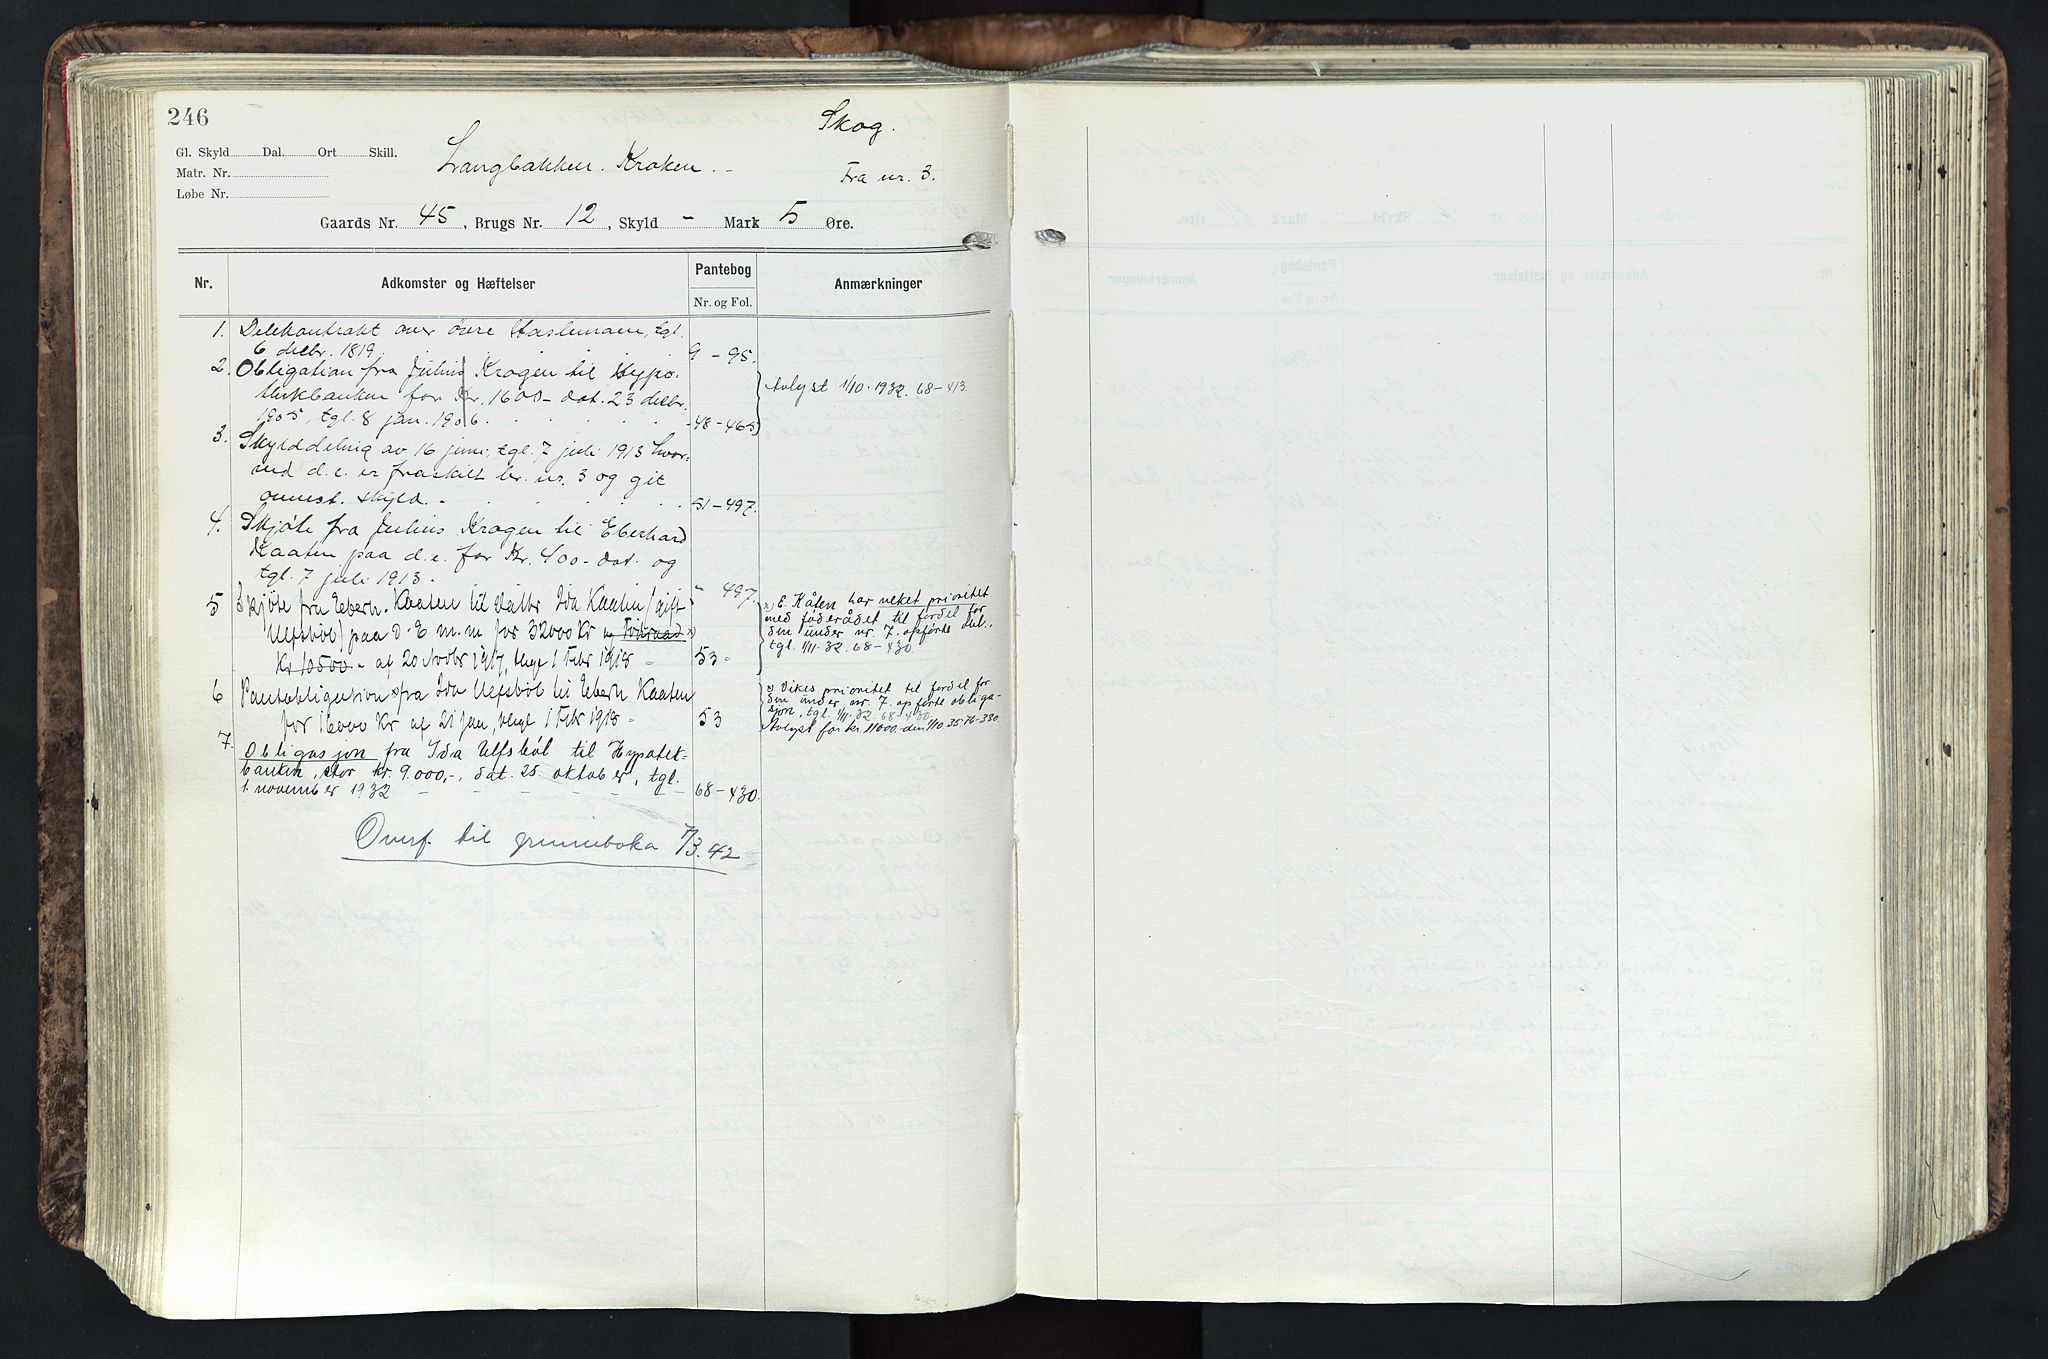 246
Skog.
Gl. Skyld Dal. Ort Skill.
Matr. Nr.
Løbe Nr.
Langbakken. Kroken. -
Fra nr. 3.
Gaards Nr. 45, Brugs Nr. 12, Skyld - Mark 5 Øre.
Nr. Adkomster og Hæftelser Pantebog Nr. og Fol. Anmærkninger
1. Delekontrakt over övre Haslemoen, tgl.
6 decbr. 1819. 9 - 95.
2. Obligation fra Julius Krogen til Hypo-
thekbanken for Kr. 1600 - dat. 23 decbr.
1905, tgl. 8 jan. 1906. 48 - 465
Avlyst 1/10. 1932. 68 - 413.
3. Skylddeling av 16 juni, tgl. 7 juli 1913 hvor-
ved d.e. er fraskilt br. nr. 3 og git
omnest. skyld. - 51 - 497.
4. Skjöte fra Julius Krogen til Eberhard
Kaaten paa d.e. for Kr. 400 - dat. og
tgl. 7 juli 1913. " 497.
5 Skjöte fra Eberh. Kaaten til Datter Ida Kaaten (gift
Ulfsböl) paa d. E m.m for 32000 Kr og Föderaad x)
Kr 10500 - af 20 Novbr 1917, thgl 1 Febr 1918 - 53 -
x) E. Kåten har veket prioritet
med föderådet til fordel for
den under nr. 7. opförte obl.,
tgl. 1/11. 32. 68 - 430.
6 Pantobligation x) fra Ida Ulfsböl til Eberh Kaaten
for 16000 Kr af 21 jan, thgl 1 Febr 1918 - 53
x) Vikes prioritet til fordel for
den under nr. 7 opførte obliga-
sjon, tgl. 1/11. 32 68 - 430.
Avlyst for kr. 11000. den 1/10. 35 76 - 330.
7. Obligasjon fra Ida Ulfsböl til Hypotek-
banken, stor kr. 9.000,-, dat. 25. oktober, tgl.
1. november 1932 68 - 430.
Overf. til grunnboka 7/3. 42